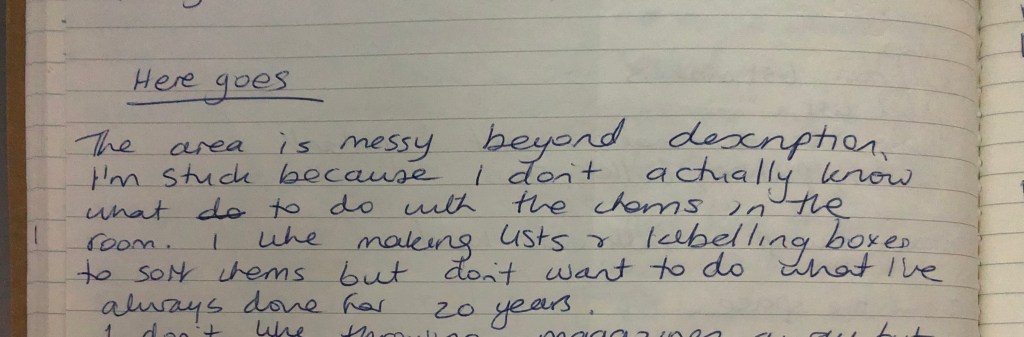 Here goes
The area is messy beyond description,
I'm stuck because I don't actually know
what do to do with the items in the
room. I like making lists & labelling boxes
to sort items but don't want to do what I've
always done for 20 years.
I don't like throwing magazines away but